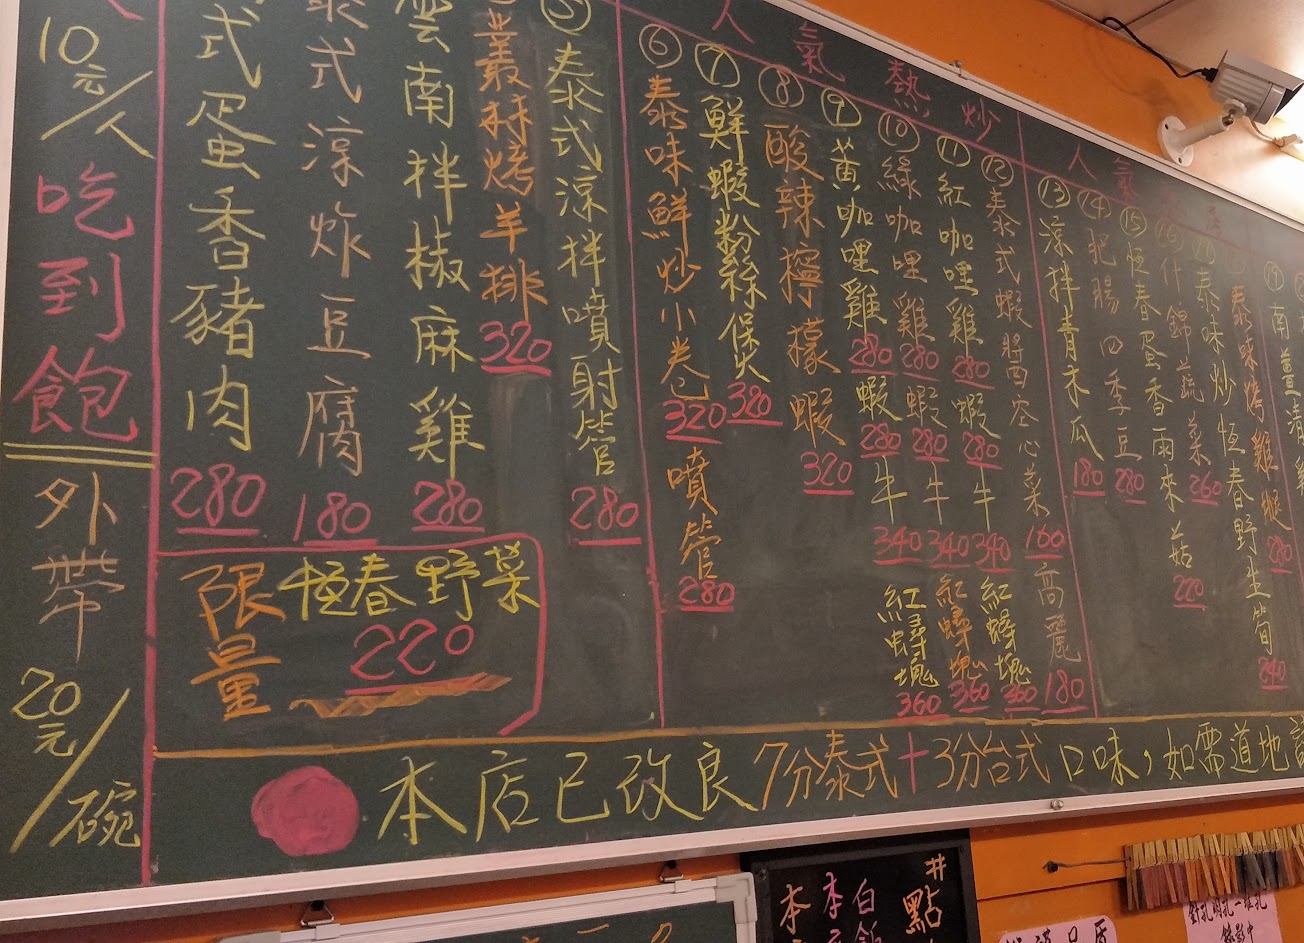 10元/人
吃到飽
外帶
20元/碗
式蛋香豬肉 280
式涼炸豆腐 180
雲南拌椒麻雞 280
叢林烤羊排 320
⑤泰式涼拌噴射管 280
限量 恒春野菜 220
人氣熱炒
⑥泰味鮮炒小卷 320 噴管 280
⑦鮮蝦粉絲煲 320
⑧酸辣檸檬蝦 320
⑨黃咖哩雞 280 蝦 280 牛 340 紅蟳塊 360
⑩綠咖哩雞 280 蝦 280 牛 340 紅蟳塊 360
⑪紅咖哩雞 280 蝦 280 牛 340 紅蟳塊 360
⑫泰式蝦醬空心菜 160 高麗 180
人氣
⑬涼拌青木瓜 180
⑭肥腸四季豆 280
⑮恒春蛋香雨來菇 220
⑯什錦蔬菜 260
泰味炒恒春野生筍 240
泰味烤雞 280
⑲南薑清雞
本店已改良7分泰式+3分台式口味,如需道地
#點
白飯
本店
本